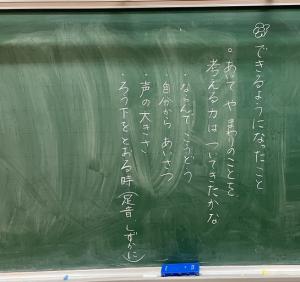 できるようになったこと
。あいて や まわりのことを
考える力は ついてきたかな
・ならんで こうどう
・自分から あいさつ
・声の大きさ
・ろう下をとおる時(足音 しずかに)